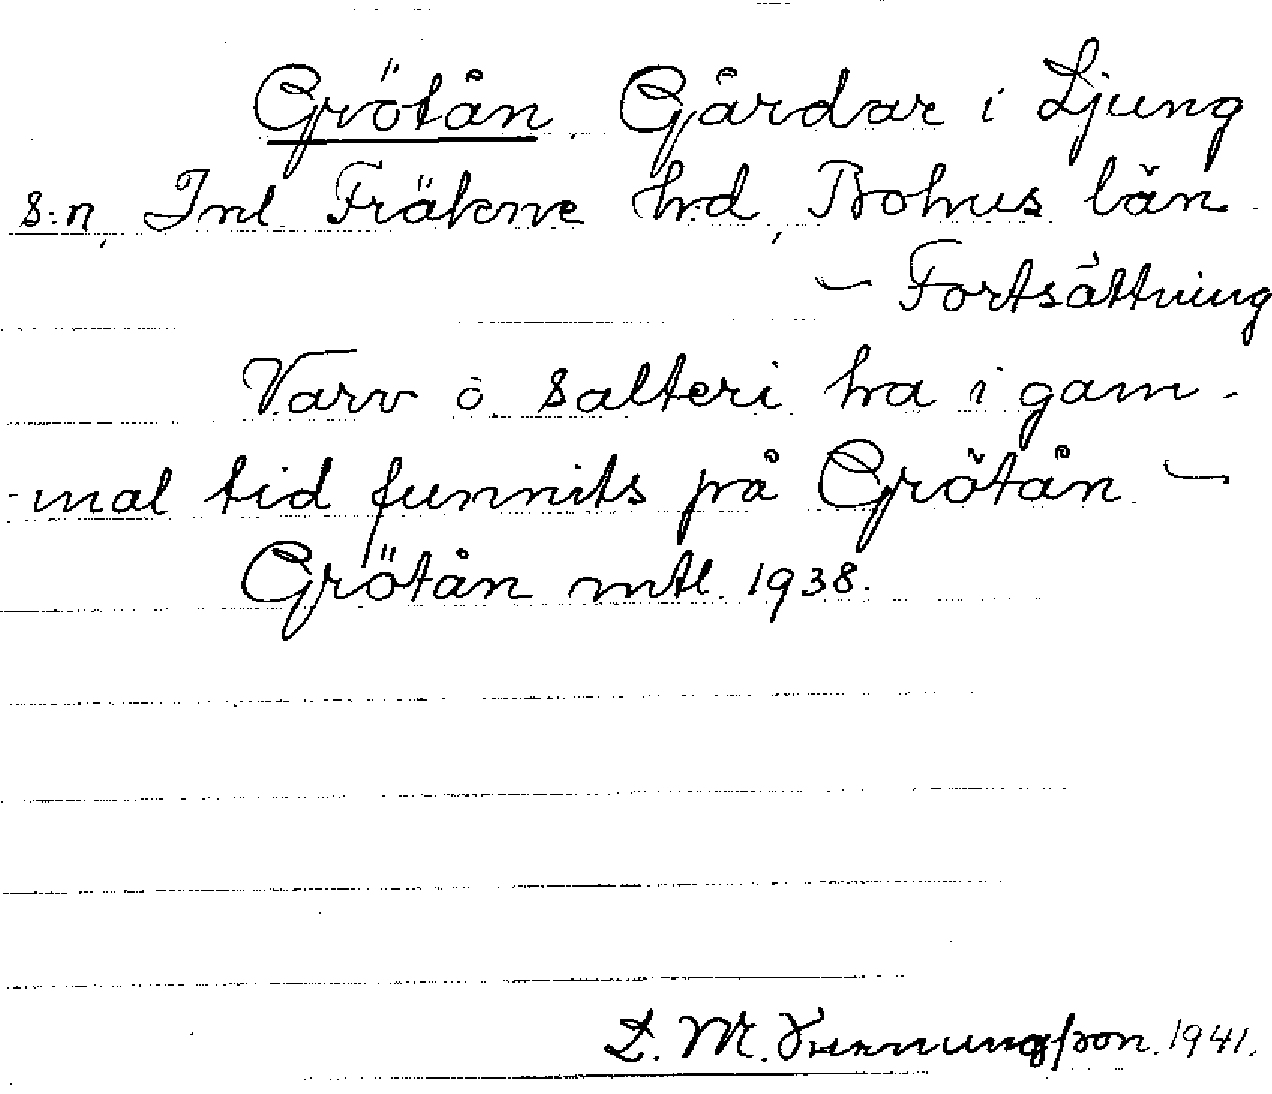 Grötån. Gårdar i Ljung
s:n, Inl Fräkne hrd, Bohus län
– Fortsättning
Varv o. salteri ha i gam-
-mal tid funnits på Grötån –
Grötån mtl. 1938.
L. M. 1941.